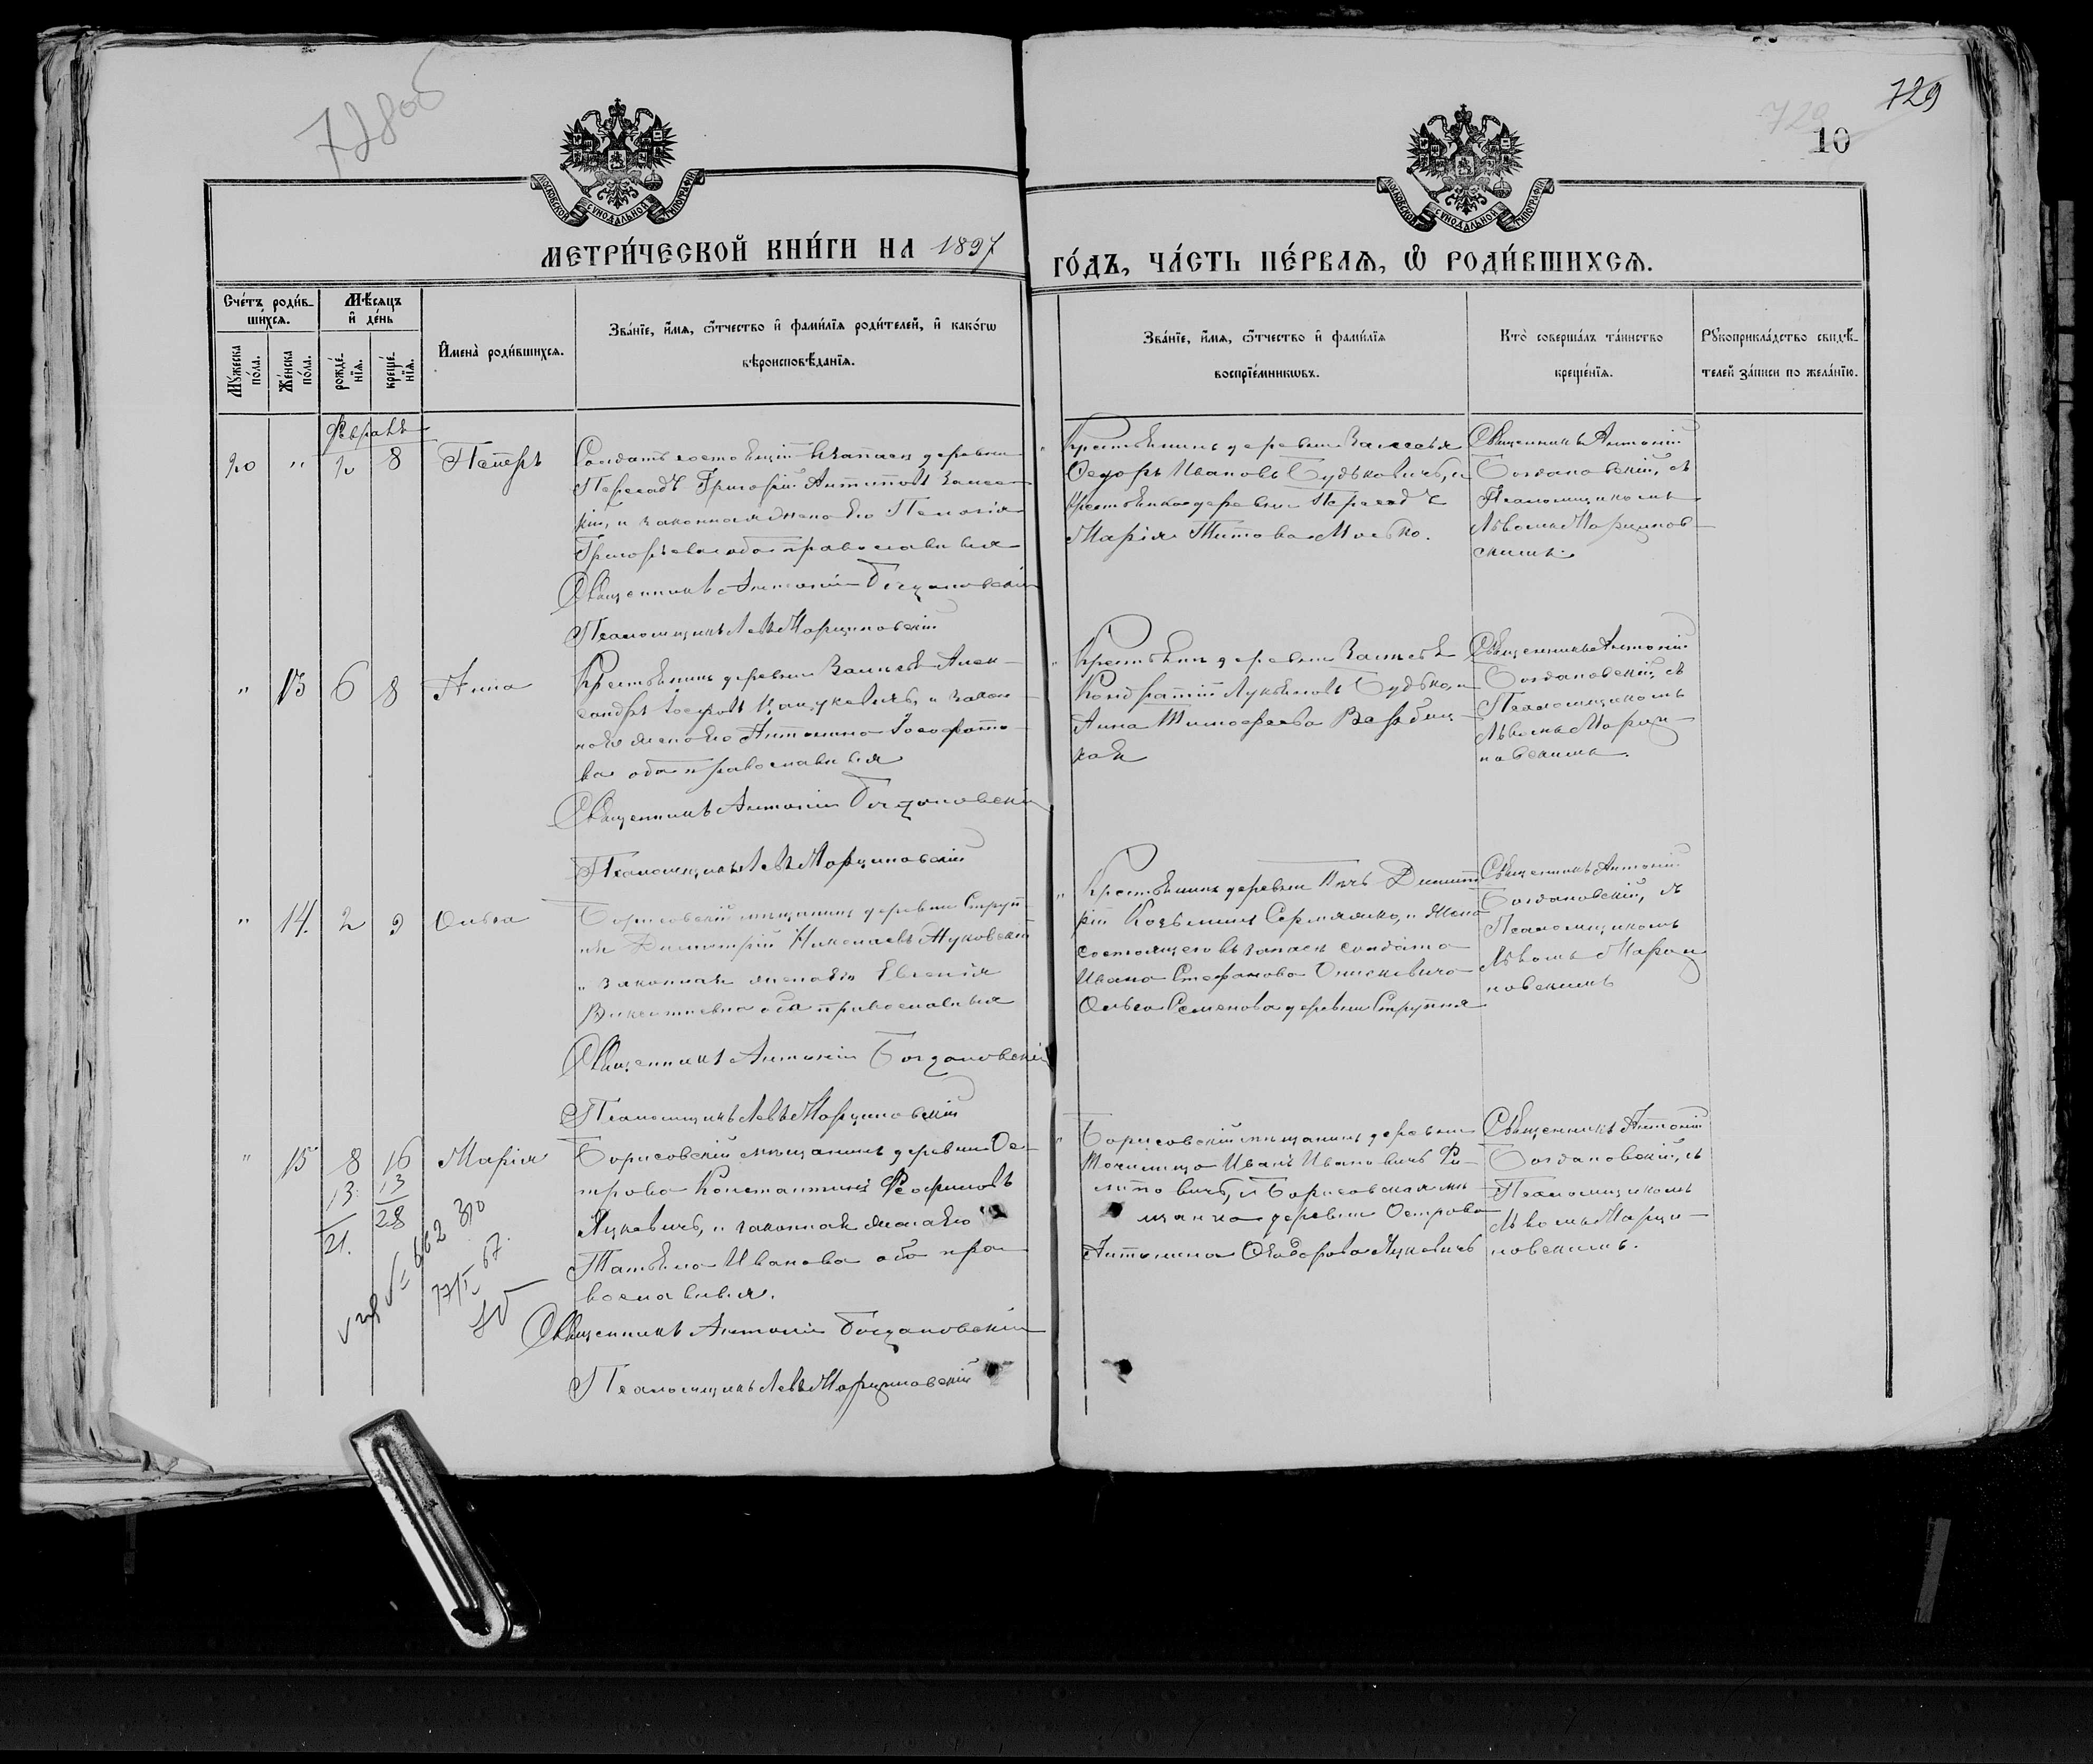 728об
729
729
10
МОСКОВСКОЙ СѴНОДАЛЬНОЙ ТИПОГРАФІИ
МОСКОВСКОЙ СѴНОДАЛЬНОЙ ТИПОГРАФІИ
МЕТРИ́ЧЕСКОЙ КНИ́ГИ НА 1897
ГО́ДЪ, ЧА́СТЬ ПЕ́РВАЯ, Ѡ҆ РОДИ́ВШИХСЯ.
Сче́тъ роди́в-
ши́хся.
Мѣ́сяцъ
и҆ де́нь
Мꙋ́жеска по́ла.
Же́нска по́ла.
рожде́-
нїя.
креще́-
нїя.
И҆мена̀ роди́вшихся.
Зва́нїе, и҆́мя, ѻ҆́тчество и҆ фами́лїя роди́телей, и҆ како́гѡ
вѣроисповѣ́данїя.
Зва́нїе, и҆́мя, ѻ҆́тчество и҆ фами́лїя
воспрїе́мникѡвъ.
Кто̀ соверша́лъ та́инство
креще́нїя.
Рꙋкоприкла́дство свидѣ́-
телей за́писи по жела́нїю.
Февраль
20 " 2 8 Петеръ
Солдатъ состоящій въ запасѣ деревни
Пересадъ Григорій Антиповъ
и законная жена его Пелагія
Григорьева оба православныя
Священникъ Антоній Богдановскій
Псаломщикъ Левъ Марциновскій
Крестьянинъ деревни Залесья
Ѳедоръ Ивановъ Будьковичъ, и
крестьянка деревни Пересадъ
Марія Титова
Священникъ Антоній
Богдановскій, съ
Псаломщикомъ
Львомъ Марцинов-
скимъ.
" 13 6 8 Анна
Крестьянинъ деревни Залесья Алек-
сандръ Іосифовъ и закон-
ная жена его Антонина Іосафато-
ва оба православныя
Священникъ Антоній Богдановскій
Псаломщикъ Левъ Марциновскій
Крестьянинъ деревни Залесья
Кондратій Лукьяновъ Будько, и
Анна Тимофеева
Священникъ Антоній
Богдановскій, съ
Псаломщикомъ
Львомъ Марци-
новскимъ.
" 14. 2 9 Ольга
Борисовскій мѣщанинъ деревни Струп-
ня Димитрій Николаевъ Жуковскій
и законная жена его Евгенія
Викентіевна оба православныя
Священникъ Антоній Богдановскій
Псаломщикъ Левъ Марциновскій
Крестьянинъ деревни Димит-
рій Козьминъ Сермяжко, и жена
состоящего въ запасѣ солдата
Ивана Стефанова Онискевича
Ольга Семенова деревни Струпня
Священникъ Антоній
Богдановскій, съ
Псаломщикомъ
Львомъ Марци
новскимъ
" 15 8 16 Марія
13 13
21. 28
Борисовскій мѣщанинъ деревни Ос-
трова Константинъ Феофиловъ
Яцкевичъ, и законная жена его
Татьяна Иванова оба пра-
вославныя.
Священникъ Антоній Богдановскій
Псаломщикъ Левъ Марциновскій
Борисовскій мѣщанинъ деревни
Точилища Иванъ Ивановичъ Фи-
липовичъ, и Борисовская мѣ-
щанка деревни Острова
Антонина Ѳеодорова Яцкевичъ
Священникъ Антоній
Богдановскій, съ
Псаломщикомъ
Львомъ Марци-
новскимъ.